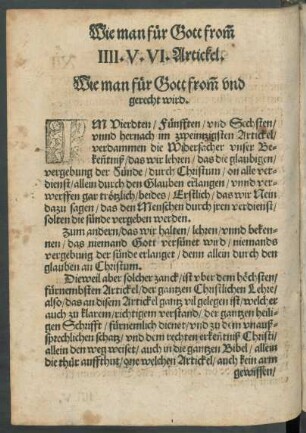 Wie man für Gott from̃
IIII. V. VI. Artickel.
Wie man für Gott from̃ vnd
gerecht wird.
IM Vierdten / Fünfften / vnd Sechsten /
vnnd hernach im zwentzigsten Artickel /
verdammen die Widersacher vnser Be-
kentnuß / das wir lehren / das die glaubigen /
vergebung der Sünde / durch Christum / on alle ver-
dienst / allein durch den Glauben erlangen / vnnd ver-
werffen gar trötzlich / beides / Erstlich / das wir Nein
dazu sagen / das den Menschen durch jren verdienst /
solten die sünde vergeben werden.
Zum andern / das wir halten / lehren / vnnd beken-
nen / das niemand Gott versünet wird / niemands
vergebung der sünde erlanget / denn allein durch den
glauben an Christum.
Dieweil aber solcher zanck / ist vber dem höchsten /
fürnembsten Artickel / der gantzen Christlichen Lehre /
also / das an disem Artickel gantz vil gelegen ist / welcher
auch zu klarem / richtigem verstand / der gantzen heili-
gen Schrifft / fürnemlich dienet / vnd zu dem vnauß-
sprechlichen schatz / vnd dem rechten erkentnuß Christi /
allein den weg weiset / auch in die gantzen Bibel / allein
die thür auffthut / one welchen Artickel / auch kein arm
gewissen /